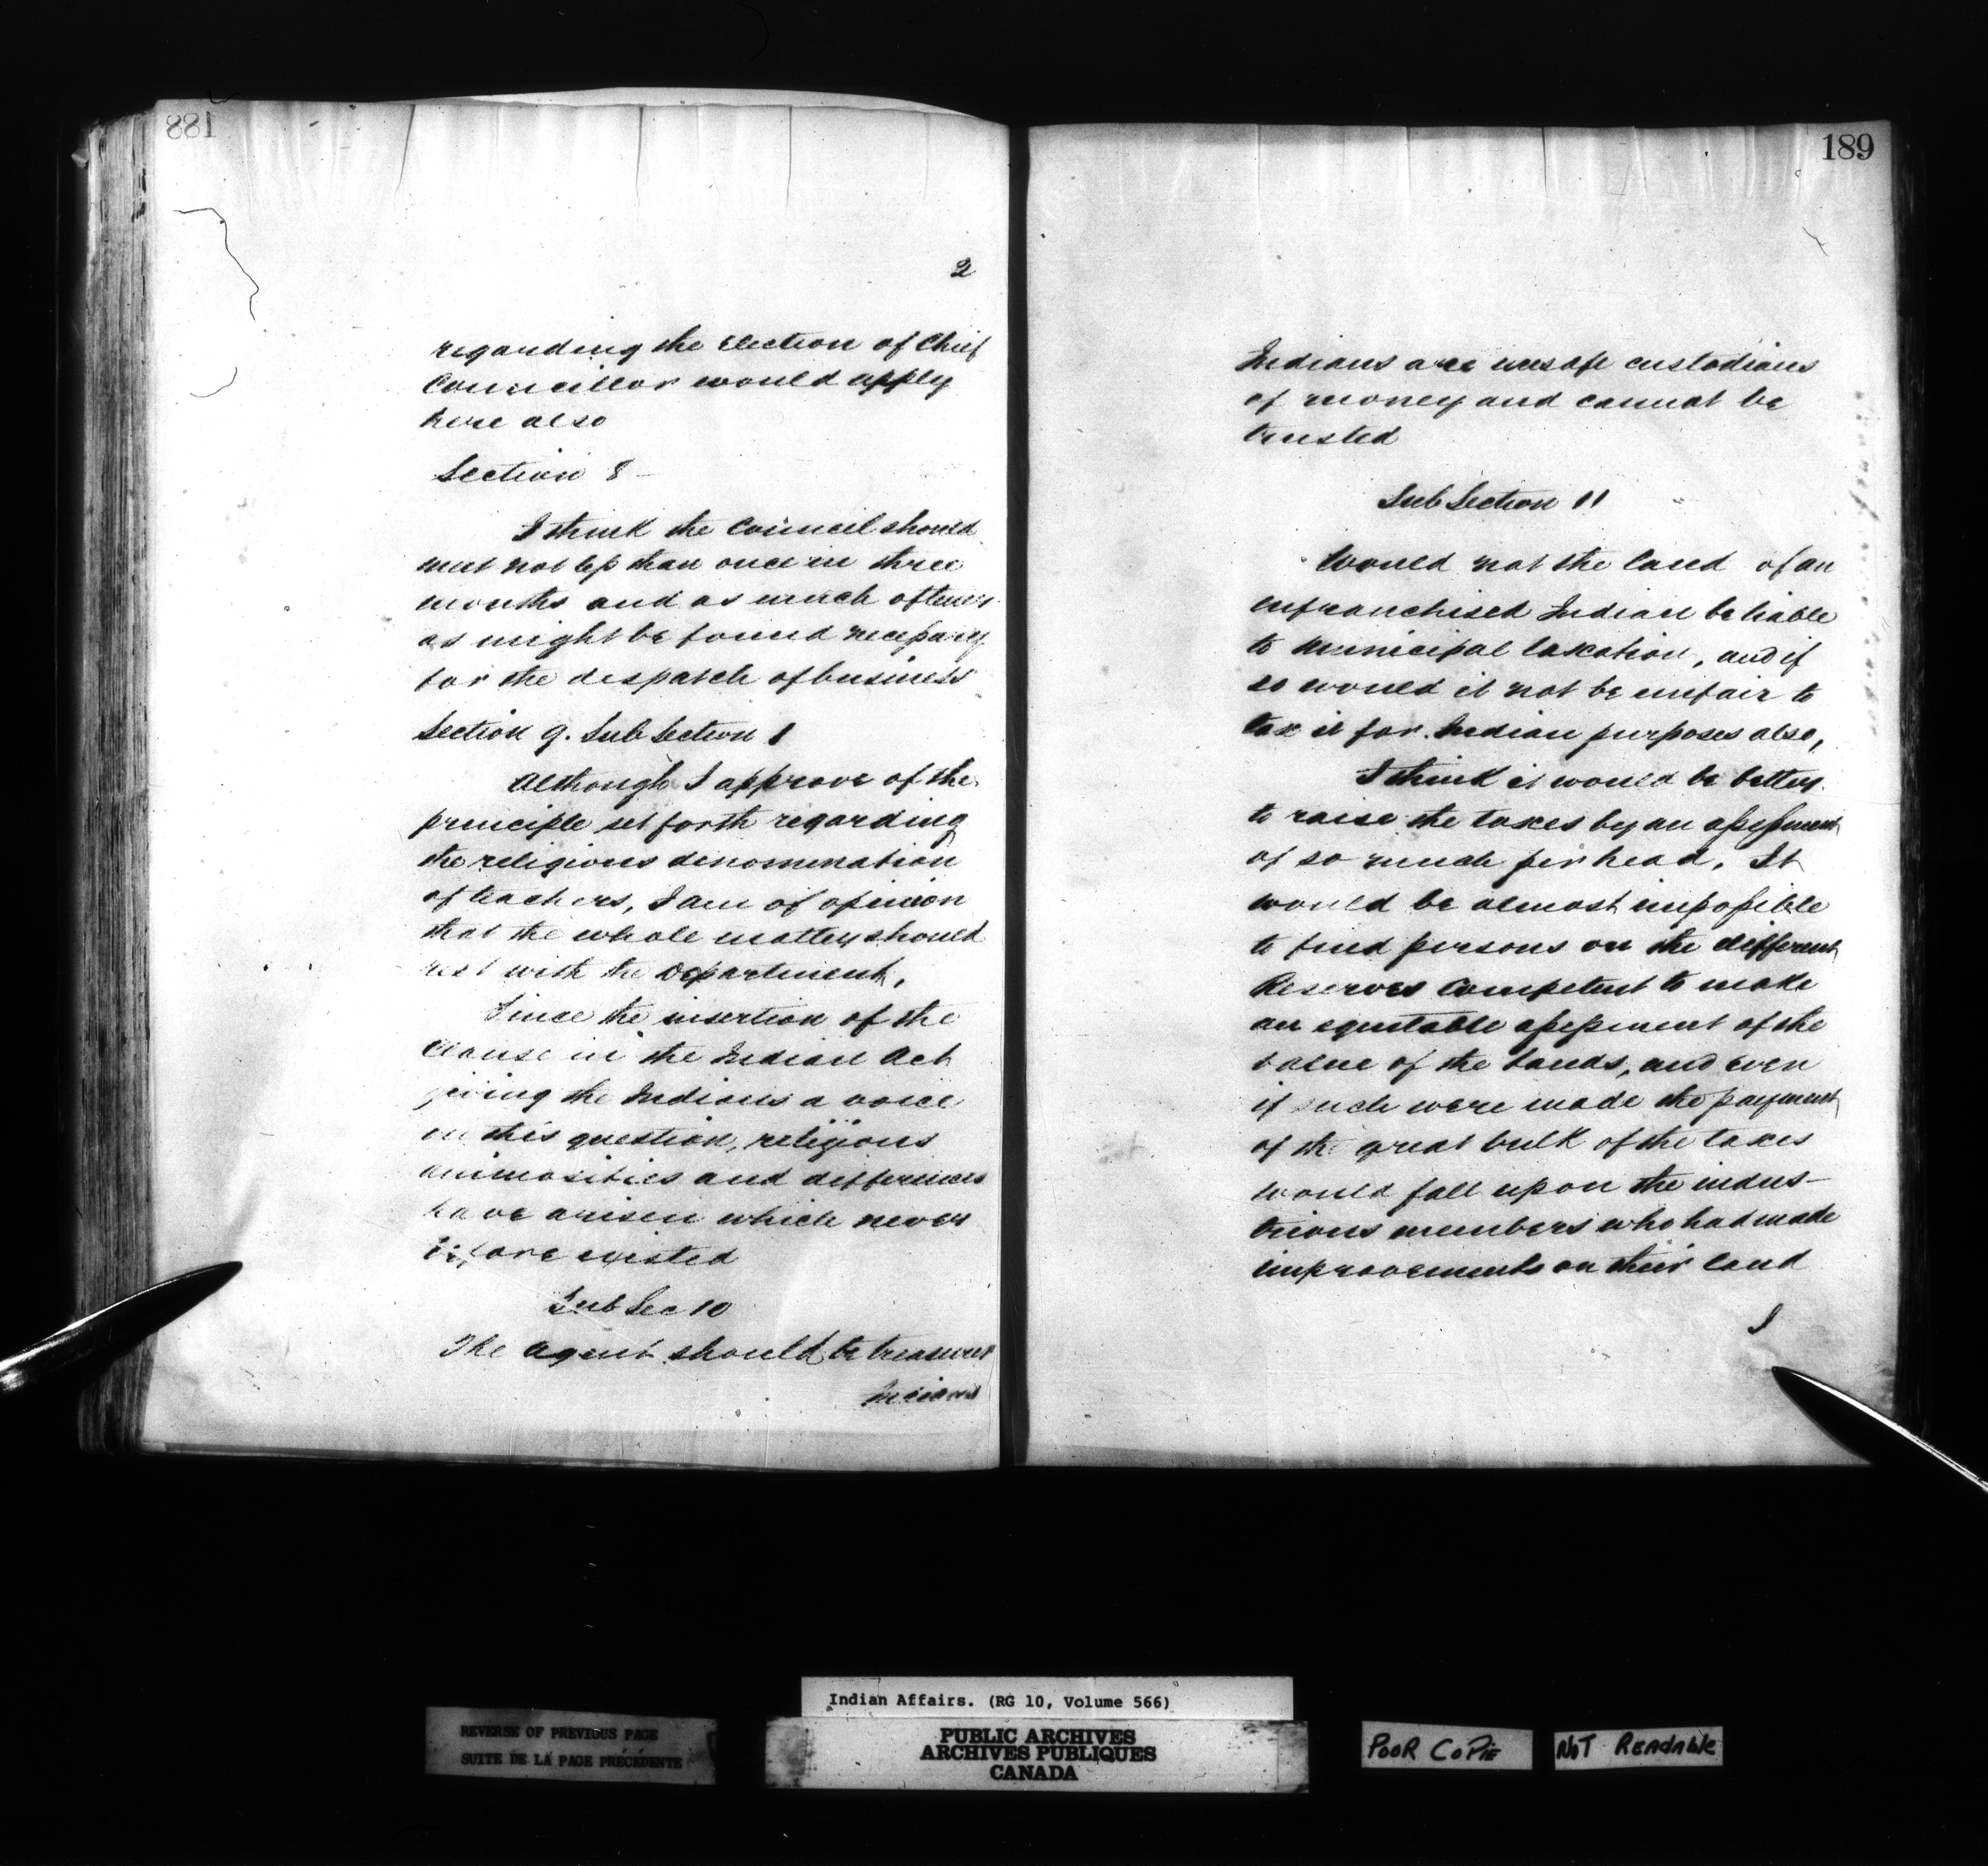 188
2
regarding the Election of Chief
Councillor would apply
here also
Section 8 —
I think the Council should
meet not less than once in three
months and as much oftener
as might be found necessary
for the despatch of business
Section 9. Sub Section 1
Although I approve of the
principle set forth regarding
the religious denomination
of teachers, I am of opinion
that the whole matter should
rest with the Department,
Since the insertion of the
Clause in the Indian Act
giving the Indians a voice
in this question, religious
animosities and differences
have arisen which never
before existed
Sub Sec 10
The Agent should be treasurer
Indians
189
Indians are unsafe custodians
of money and cannot be
trusted
Sub Section 11
Would not the land of an
enfranchised Indian be liable
to Municipal taxation, and if
so would it not be unfair to
tax it for Indian purposes also,
I think it would be better
to raise the taxes by an assessment
of so much per head. It
would be almost impossible
to find persons on the different
Reserves Competent to make
an equitable assessment of the
value of the lands, and even
if such were made the payment
of the great bulk of the taxes
would fall upon the indus-
trious members who had made
improvements on their land
I
Indian Affairs. (RG 10, Volume 566)
REVERSE OF PREVIOUS PAGE
SUITE DE LA PAGE PRÉCÉDENTE
PUBLIC ARCHIVES
ARCHIVES PUBLIQUES
CANADA
POOR COPIE
NOT READABLE